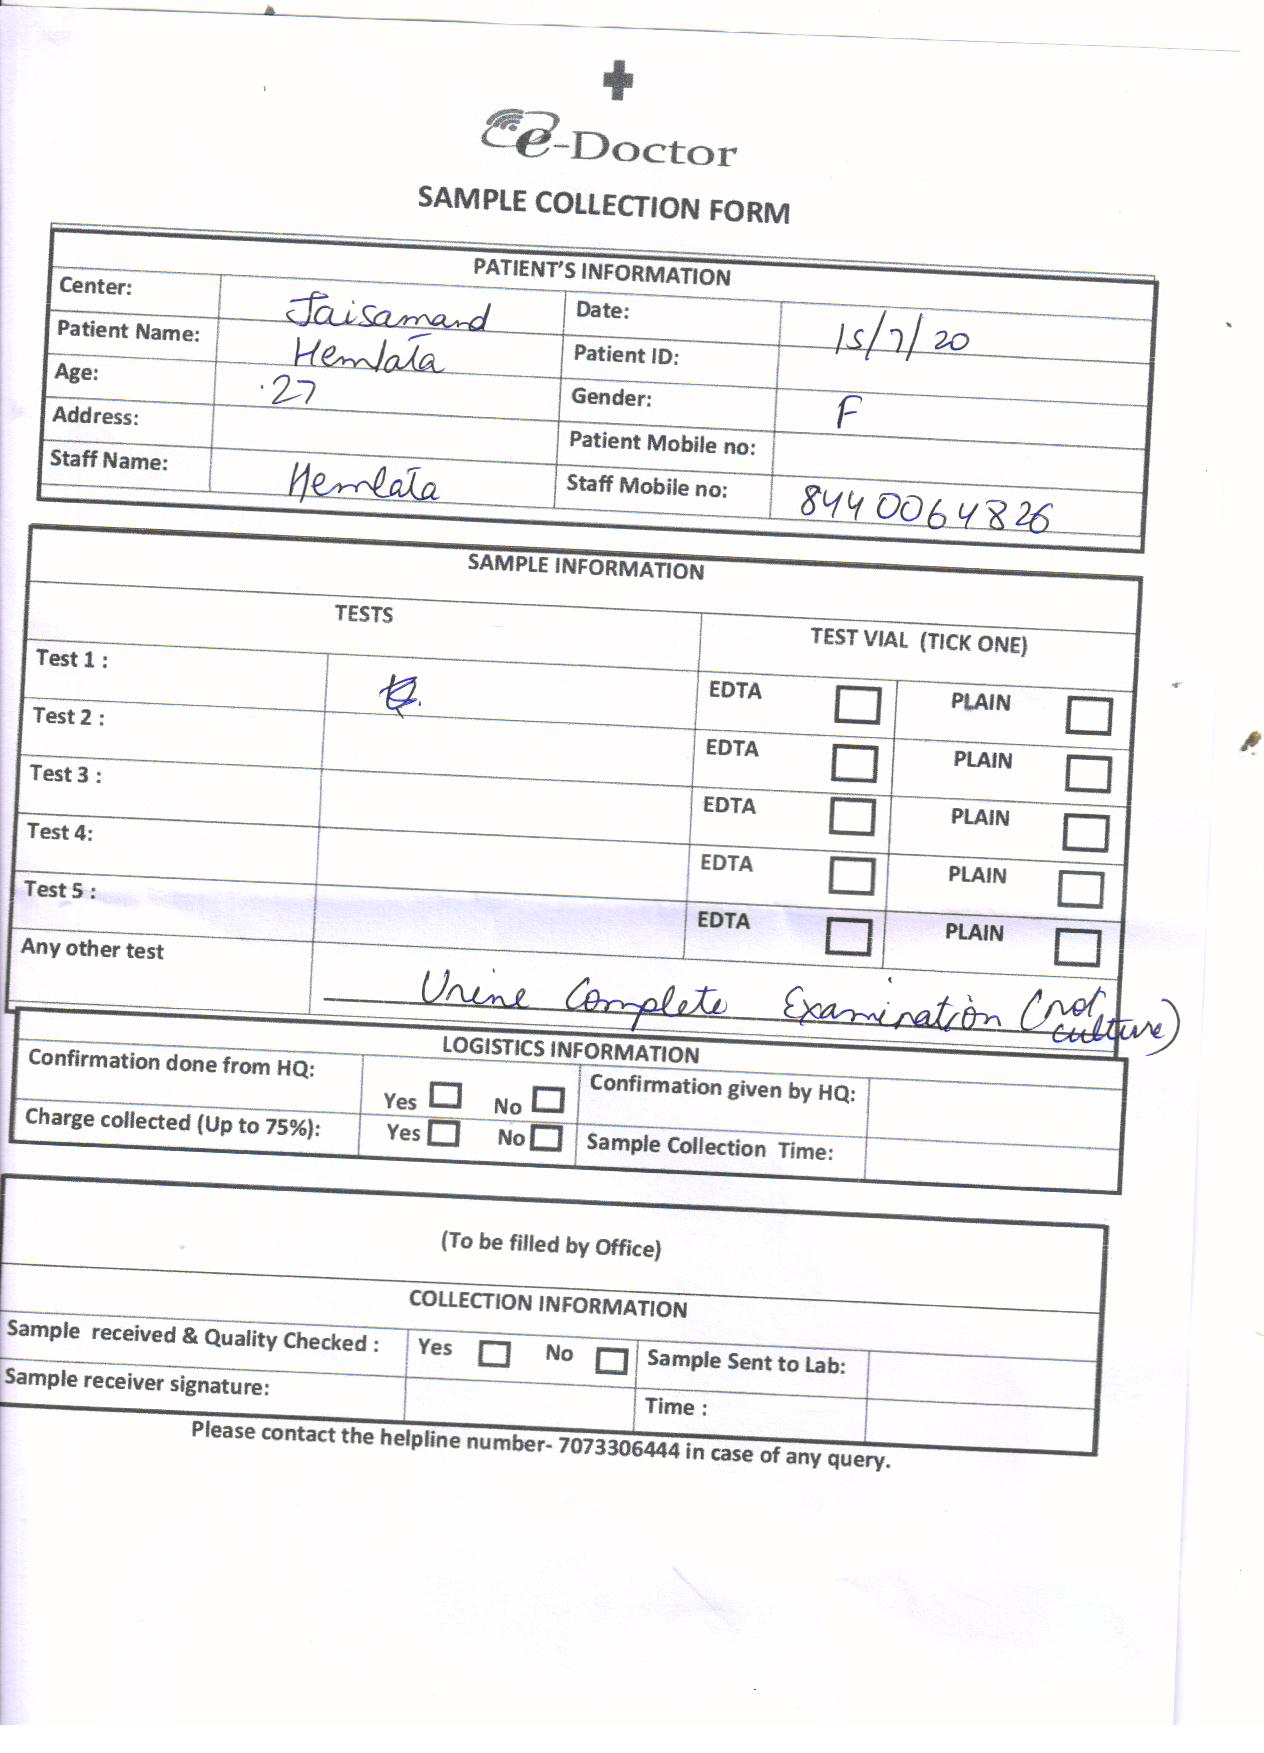 e-Doctor
SAMPLE COLLECTION FORM
PATIENT'S INFORMATION
Center: Jaisamand Date: 15/7/20
Patient Name: Hemlata Patient ID:
Age: 27 Gender: F
Address: Patient Mobile no:
Staff Name: Hemlata Staff Mobile no: 8440064826
SAMPLE INFORMATION
TESTS TEST VIAL (TICK ONE)
Test 1 : EDTA PLAIN
Test 2 : EDTA PLAIN
Test 3 : EDTA PLAIN
Test 4: EDTA PLAIN
Test 5 : EDTA PLAIN
Any other test Urine Complete Examination (not
culture)
LOGISTICS INFORMATION
Confirmation done from HQ: Yes No Confirmation given by HQ:
Charge collected (Up to 75%): Yes No Sample Collection Time:
(To be filled by Office)
COLLECTION INFORMATION
Sample received & Quality Checked : Yes No Sample Sent to Lab:
Sample receiver signature: Time :
Please contact the helpline number- 7073306444 in case of any query.